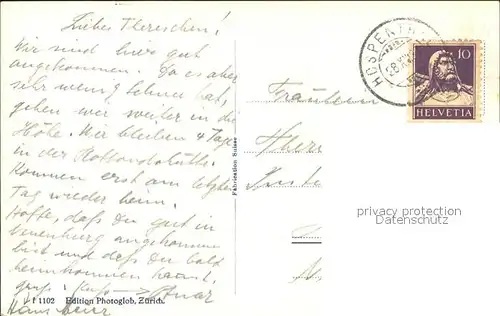 Liebes Thereschen!
Wir sind hier gut
angekommen. Da es aber
sehr wenig Schnee hat,
gehen wir weiter in die
Höhe. Wir bleiben 4 Tage
in der Rottondohütte.
Kommen erst am letzten
Tag wieder heim.
Hoffe, daß Du gut in
angekommen
bist und daß Du bald
heimkommen kannst.
Gruß + Kuß
Hans
Fabrication Suisse
1102 Edition Photoglob, Zürich.
HOSPENTHAL
10
HELVETIA
Fräulein
privacy protection
Datenschutz